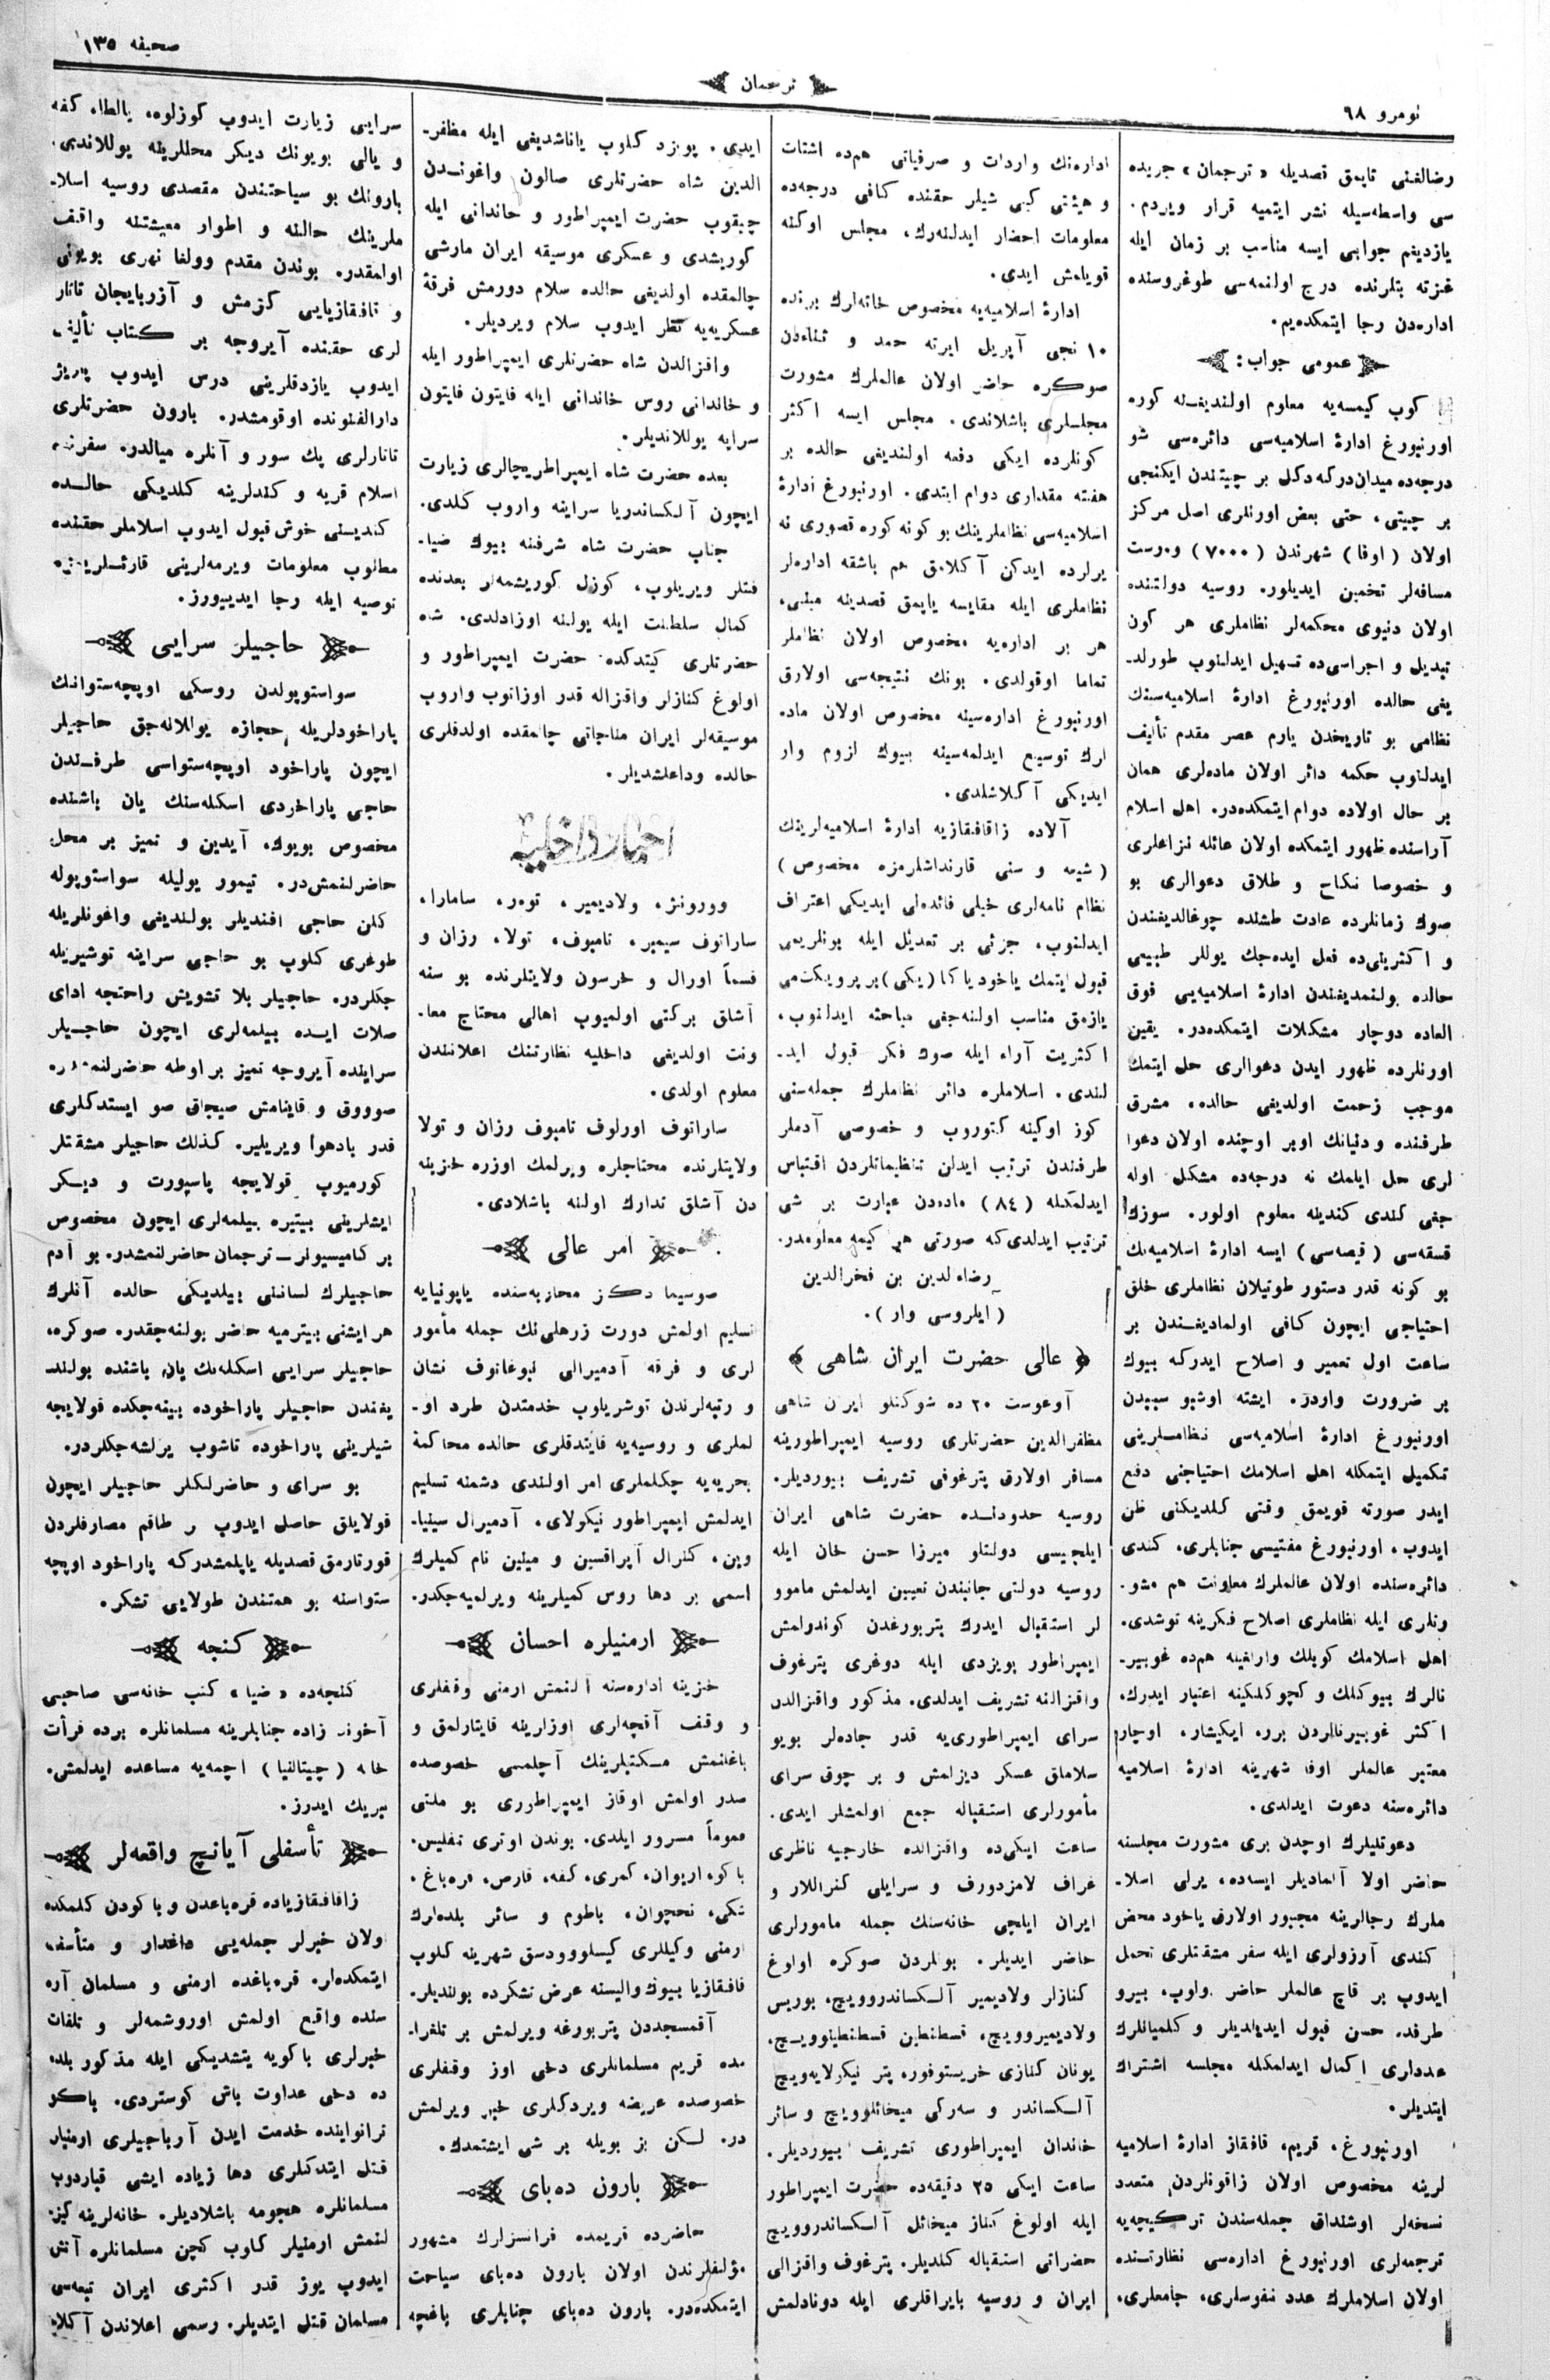 نومرو ٦٨
ترجمان
صحیفه ١٣٥
رضالغنی تاپمق قصدیله «ترجمان» جریده
سی واسطه‌سیله نشر ایتمیه قرار ویردم.
یازدیغم جوابی ایسه مناسب بر زمان ایله
غزته بتلرنده درج اولنمه‌سی طوغروسنده
اداره‌دن رجا ایتمکده‌یم.
عمومی جواب:
کوب کیمسه‌یه معلوم اولندیغنه کوره
اورنبورغ ادارهٔ اسلامیه‌سی دائره‌سی شو
درجه‌ده میدان‌درکه دکل بر چیتندن ایکنجی
بر چیتی، حتی بعض اورنلری اصل مرکز
اولان (اوفا) شهرندن (٧٠٠٠) ویرست
مسافه‌لر تخمین ایدیلور. روسیه دولتنده
اولان دنیوی محکمه‌لر نظاملری هر کون
تبدیل و اجراسی‌ده تسهیل ایدلنوب طورلد۔
یغی حالده اورنبورغ ادارهٔ اسلامیه‌سنك
نظامی بو تاریخدن یارم عصر مقدم تألیف
ایدلنوب حکمه دائر اولان ماده‌لری همان
بر حال اولاده دوام ایتمکده‌در. اهل اسلام
آراسنده ظهور ایتمکده اولان عائله نزاعلری
و خصوصا نکاح و طلاق دعوالری بو
صوك زمانلرده عادت طشنده چوغالدیغندن
و اکثریتی‌ده فعل ایده‌جك یوللر طبیعی
حالده بولنمدیغندن ادارهٔ اسلامیه‌یی فوق
العاده دوچار مشکلات ایتمکده‌در. یقین
اورنلرده ظهور ایدن دعوالری حل ایتمك
موجب زحمت اولدیغی حالده، مشرق
طرفنده و دنیانك اویر اوچنده اولان دعوا
لری حل ایلمك نه درجه‌ده مشکل اوله
جغی کندی کندینه معلوم اولور. سوزك
قسقه‌سی (قیصه‌سی) ایسه ادارهٔ اسلامیه‌نك
بو کونه قدر دستور طوتیلان نظاملری خلق
احتیاجی ایچون کافی اولمادیغندن بر
ساعت اول تعمیر و اصلاح ایدرکه بیوك
بر ضرورت واردر. ایشته اوشبو سببدن
اورنبورغ ادارهٔ اسلامیه‌سی نظاملرینی
تکمیل ایتمکله اهل اسلامك احتیاجنی دفع
ایدر صورته قویمق وقتی کلدیکنی ظن
ایدوب، اورنبورغ مفتیسی جنابلری، کندی
دائره‌سنده اولان عالملرك معاونت هم مشو۔
رتلری ایله نظاملری اصلاح فکرینه توشدی.
اهل اسلامك کوبلك وازلغینه هم‌ده غوبیر۔
نالرك بیوکلك و کچوکلکینه اعتبار ایدرك،
اکثر غوبیرنالردن برر، ایکیشار، اوچار
معتبر عالملر اوفا شهرینه ادارهٔ اسلامیه
دائره‌سنه دعوت ایدلدی.
دعوتلیلرك اوچدن بری مشورت مجلسنه
حاضر اولا آلمادیلر ایسه‌ده، یرلی اسلا۔
ملرك رجالرینه مجبور اولارق یاخود محض
کندی آرزولری ایله سفر مشقتلری تحمل
ایدوب بر قاچ عالملر حاضر اولوب، بیرو
طرفده حسن قبول ایدیلدیلر و کلمیانلرك
عددلری اکمال ایدلمکله مجلسه اشتراك
ایتدیلر.
اورنبورغ، قریم، قافقاز ادارهٔ اسلامیه
لرینه مخصوص اولان زاقونلردن متعدد
نسخه‌لر اوشنداق جمله‌سندن ترکیچه‌یه
ترجمه‌لری اورنبورغ اداره‌سی نظارتنده
اولان اسلاملرك عدد نفوسلری، جامعلری،
اداره‌نك واردات و صرفیاتی هم‌ده اشتات
و هیئتی کبی شیلر حقنده کافی درجه‌ده
معلومات احضار ایدلنه‌رك، مجلس اوکنه
قویلمش ایدی.
ادارهٔ اسلامیه‌یه مخصوص خانه‌لرك برنده
١٠ نجی آپریل ایرته حمد و ثناءدن
صوکره حاضر اولان عالملرك مشورت
مجلسلری باشلاندی. مجلس ایسه اکثر
کونلرده ایکی دفعه اولندیغی حالده بر
هفته مقداری دوام ایتدی. اورنبورغ ادارهٔ
اسلامیه‌سی نظاملرینك بو کونه کوره قصوری نه
یرلرده ایدکن آکلامق هم باشقه اداره‌لر
نظاملری ایله مقایسه یاپمق قصدینه مبنی،
هر بر اداره‌یه مخصوص اولان نظاملر
تماما اوقولدی. بونك نتیجه‌سی اولارق
اورنبورغ اداره‌سینه مخصوص اولان ماده
لرك توسیع ایدلمه‌سینه بیوك لزوم وار
ایدیکی آکلاشلدی.
آلاده زاقافقازیه ادارهٔ اسلامیه‌لرینك
(شیعه و سنی قارنداشلرمزه مخصوص)
نظام نامه‌لری خیلی فائده‌لی ایدیکی اعتراف
ایدلنوب، جزئی بر تعدیل ایله بونلریمی
قبول ایتمك یاخود یاکا (یکی) بر پرویکت‌می
یازمق مناسب اولنه‌جغی مباحثه ایدلنوب،
اکثریت آراء ایله صوك فکر قبول اید۔
لندی. اسلاملره دائر نظاملرك جمله‌سنی
کوز اوکینه کتوروب و خصوصی آدملر
طرفندن ترتیب ایدلن تنظیماتلردن اقتباس
ایدلمکله (٨٤) ماده‌دن عبارت بر شی
ترتیب ایدلدی‌که صورتی هر کیمه معلومدر.
رضاءلدین بن فخرالدین
(آیلروسی وار).
عالی حضرت ایران شاهی
آوغوست ٢٠ ده شوکتلو ایران شاهی
مظفرالدین حضرتلری روسیه ایمپراطورینه
مسافر اولارق پترغوفی تشریف بیوردیلر.
روسیه حدودنده حضرت شاهی ایران
ایلچیسی دولتلو میرزا حسن خان ایله
روسیه دولتی جانبندن تعیین ایدلمش مامور
لر استقبال ایدرك پتربورغدن کوندرلمش
ایمپراطور پویزدی ایله دوغری پترغوف
واقزالنه تشریف ایدلدی. مذکور واقزالدن
سرای ایمپراطوری‌یه قدر جاده‌لر بویو
سلاملق عسکر دیزلمش و بر چوق سرای
مأمورلری استقباله جمع اولمشلر ایدی.
ساعت ایکی‌ده واقزالده خارجیه ناظری
غراف لامزدورف و سرایلی کنراللار و
ایران ایلچی خانه‌سنك جمله مامورلری
حاضر ایدیلر. بونلردن صوکره اولوغ
کنازلر ولادیمیر آلکساندروویچ، بوریس
ولادیمیروویچ، قسطنطین قسطنطینوویچ،
یونان کنازی خریستوفور، پتر نیکولایه‌ویچ
آلکساندر و سه‌رکی میخائلوویچ و سائر
خاندان ایمپراطوری تشریف بیوردیلر.
ساعت ایکی ٢٥ دقیقه‌ده حضرت ایمپراطور
ایله اولوغ کناز میخائل آلکساندروویچ
حضراتی استقباله کلدیلر. پترغوف واقزالی
ایران و روسیه بایراقلری ایله دونادلمش
ایدی. پویزد کلوب یاناشدیغی ایله مظفر۔
الدین شاه حضرتلری صالون واغوندن
چیقوب حضرت ایمپراطور و خاندانی ایله
کوریشدی و عسکری موسیقه ایران مارشی
چالمقده اولدیغی حالده سلام دورمش فرقهٔ
عسکریه‌یه نظر ایدوب سلام ویردیلر.
واقزالدن شاه حضرتلری ایمپراطور ایله
و خاندانی روس خاندانی ایله فایتون فایتون
سرایه یوللاندیلر.
بعده حضرت شاه ایمپراطریچالری زیارت
ایچون آلکساندریا سراینه واروب کلدی.
جناب حضرت شاه شرفنه بیوك ضیا۔
فتلر ویریلوب، کوزل کوریشمه‌لر بعدنده
کمال سلطنت ایله یولنه اوزادلدی. شاه
حضرتلری کیتدکده حضرت ایمپراطور و
اولوغ کنازلر واقزاله قدر اوزانوب واروب
موسیقه‌لر ایران مناجاتی چالمقده اولدقلری
حالده وداعلشدیلر.
اخبار داخلیه
وورونژ، ولادیمیر، توه‌ر، سامارا،
ساراتوف سیمبر، تامبوف، تولا، رزان و
قسماً اورال و خرسون ولایتلرنده بو سنه
آشلق برکتی اولمیوب اهالی محتاج معا۔
ونت اولدیغی داخلیه نظارتنك اعلانندن
معلوم اولدی.
ساراتوف اورلوف تامبوف رزان و تولا
ولایتلرنده محتاجلره ویرلمك اوزره خزینه
دن آشلق تدارك اولنه باشلادی.
امر عالی
صوسیما دکز محاربه‌سنده یاپونیایه
تسلیم اولمش دورت زرهلی‌نك جمله مأمور
لری و فرقه آدمیرالی نبوغاتوف نشان
و رتبه‌لرندن توشریلوب خدمتدن طرد او۔
لملری و روسیه‌یه قایتدقلری حالده محاکمهٔ
بحریه‌یه چکلملری امر اولندی دشمنه تسلیم
ایدلمش ایمپراطور نیکولای، آدمیرال سینیا۔
وین، کنرال آپراقسین و مینین نام کمیلرك
اسمی بر دها روس کمیلرینه ویرلمیه‌جکدر.
ارمنیلره احسان
خزینه اداره‌سنه آلنمش ارمنی وقفلری
و وقف آقچه‌لری اوزلرینه قایتارلمق و
باغلانمش مکتبلرینك آچلمسی خصوصده
صدر اولمش اوقاز ایمپراطوری بو ملتی
عموماً مسرور ایلدی. بوندن اوتری تفلیس،
باکو، اریوان، کمری، کفه، قارص، قره‌باغ،
شکی، نخچوان، باطوم و سائر بلده‌لرك
ارمنی وکیللری کیسلوودسق شهرینه کلوب
قافقازیا بیوك والیسنه عرض تشکرده بولندیلر.
آقمسجددن پتربورغه ویرلمش بر تلغرا۔
مده قریم مسلمانلری دخی اوز وقفلری
خصوصده عریضه ویردکلری خبر ویرلمش
در. لکن بز بویله بر شی ایشتمدك.
بارون ده‌بای
حاضرده قریمده فرانسزلرك مشهور
مؤلفلرندن اولان بارون ده‌بای سیاحت
ایتمکده‌در. بارون ده‌بای جنابلری باغچه
سرایی زیارت ایدوب کوزلوه، یالطا، کفه
و یالی بویونك دیکر محللرینه یوللاندی.
بارونك بو سیاحتندن مقصدی روسیه اسلا۔
ملرینك حالنه و اطوار معیشتنه واقف
اولمقدر. بوندن مقدم وولغا نهری بویونی
و قافقازیایی کزمش و آزربایجان تاتار
لری حقنده آیروجه بر کتاب تألیف
ایدوب یازدقلرینی درس ایدوب پاریژ
دارالفنونده اوقومشدر. بارون حضرتلری
تاتارلری پك سور و آنلره میالدر. سفرنده
اسلام قریه و کندلرینه کلدیکی حالده
کندیسنی خوش قبول ایدوب اسلاملر حقنده
مطلوب معلومات ویرمه‌لرینی قارئلریمزه
توصیه ایله رجا ایدییورز.
حاجیلر سرایی
سواستوپولدن روسکی اوپچه‌ستوانك
پاراخودلریله حجازه یوللانه‌جق حاجیلر
ایچون پاراخود اوپچه‌ستواسی طرفندن
حاجی پاراخودی اسکله‌سنك یان باشنده
مخصوص بویوك، آیدین و تمیز بر محل
حاضرلنمش‌در. تیمور یولیله سواستوپوله
کلن حاجی افندیلر بولندیغی واغونلریله
طوغری کلوب بو حاجی سراینه توشیریله
جکلردر. حاجیلر بلا تشویش راحتجه ادای
صلات ایده بیلمه‌لری ایچون حاجیلر
سراینده آیروجه تمیز بر اوطه حاضرلنمشدر.
صوووق و قاینامش صیجاق صو ایستدکلری
قدر بادهوا ویریلیر. کذلك حاجیلر مشقتلر
کورمیوب قولایجه پاسپورت و دیکر
ایشلرینی بیتیره بیلمه‌لری ایچون مخصوص
بر کامیسیونر ـ ترجمان حاضرلنمشدر. بو آدم
حاجیلرك لساننی بیلدیکی حالده آنلرك
هر ایشنی بیترمیه حاضر بولنه‌جقدر. صوکره،
حاجیلر سرایی اسکله‌نك یان باشنده بولند۔
یغندن حاجیلر پاراخوده بینه‌جکده قولایجه
شیلرینی پاراخوده تاشوب یرلشه‌جکلردر.
بو سرای و حاضرلکلر حاجیلر ایچون
قولایلق حاصل ایدوب بر طاقم مصارفلردن
قورتارمق قصدیله یاپلمشدرکه پاراخود اوپچه
ستواسنه بو همتندن طولایی تشکر.
کنجه
کنجه‌ده «ضیا» کتب خانه‌سی صاحبی
آخوند زاده جنابلرینه مسلمانلره برده قرأت
خانه (چیتالنیا) آچمه‌یه مساعده ایدلمش.
تبریك ایدرز.
تأسفلی آیانچ واقعه‌لر
زاقافقازیاده قره‌باغدن و باکودن کلمکده
اولان خبرلر جمله‌یی داغدار و متأسف
ایتمکده‌لر. قره‌باغده ارمنی و مسلمان آره
سنده واقع اولمش اوروشمه‌لر و تلفات
خبرلری باکویه یتشدیکی ایله مذکور بلده
ده دخی عداوت باش کوستردی. باکو
ترانواینده خدمت ایدن آرباجیلری ارمنیلر
قتل ایتدکلری دها زیاده ایشی قباردوب
مسلمانلره هجومه باشلادیلر. خانه‌لرینه کیز
لنمش ارمنیلر کلوب کچن مسلمانلره آتش
ایدوب یوز قدر اکثری ایران تبعه‌سی
مسلمان قتل ایتدیلر. رسمی اعلاندن آکلا